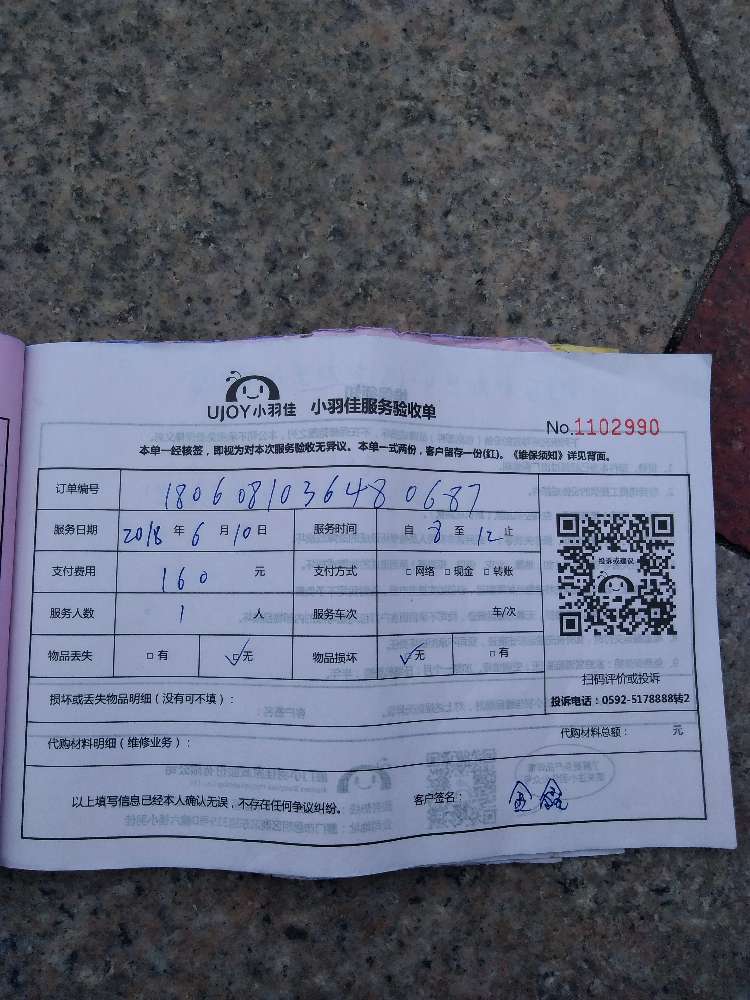 UJOY小羽佳 小羽佳服务验收单
No.1102990
本单一经核签，即视为对本次服务验收无异议。本单一式两份，客户留存一份(红)。《维保须知》详见背面。
订单编号 1806081036480687
服务日期 2018 年 6 月 10 日 服务时间 自 8 至 12 止
支付费用 160 元 支付方式 □ 网络 □ 现金 □ 转账
服务人数 1 人 服务车次 车/次
物品丢失 □ 有 ☑无 物品损坏 ☑无 □ 有
投诉或建议
扫码评价或投诉
投诉电话：0592-5178888转2
损坏或丢失物品明细（没有可不填）：
代购材料明细（维修业务）： 代购材料总额： 元
以上填写信息已经本人确认无误，不存在任何争议纠纷。 客户签名：